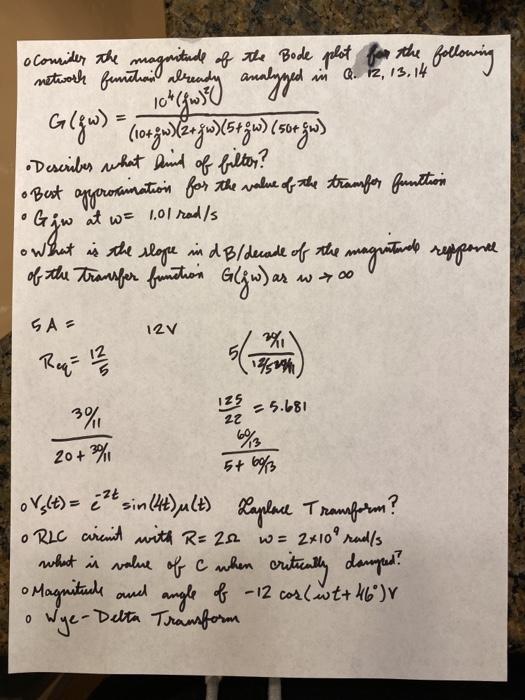 o Consider the magnitude of the Bode plot for the following
network function already analyzed in Q. 12, 13, 14
G(jw) = 10⁴(jw)²() / (10+jw)(2+jw)(5+jw)(50+jw)
• Describes what kind of filter?
o Best approximation for the value of the transfer function
o Gjw at w= 1.01 rad/s
o What is the slope in dB/decade of the magnitude response
of the transfer function G(jw) as w → ∞
5A = 12V
Req = 12/5
5( 30/11 / )
30/11 / 20 + 30/11
125/22 = 5.681
60/13 / 5 + 60/13
o Vs(t) = e^-2t sin(4t)μ(t) Laplace Transform?
o RLC circuit with R= 2Ω w = 2×10⁹ rad/s
what is value of C when critically damped?
o Magnitude and angle of -12 cos(wt+46°)V
o Wye-Delta Transform